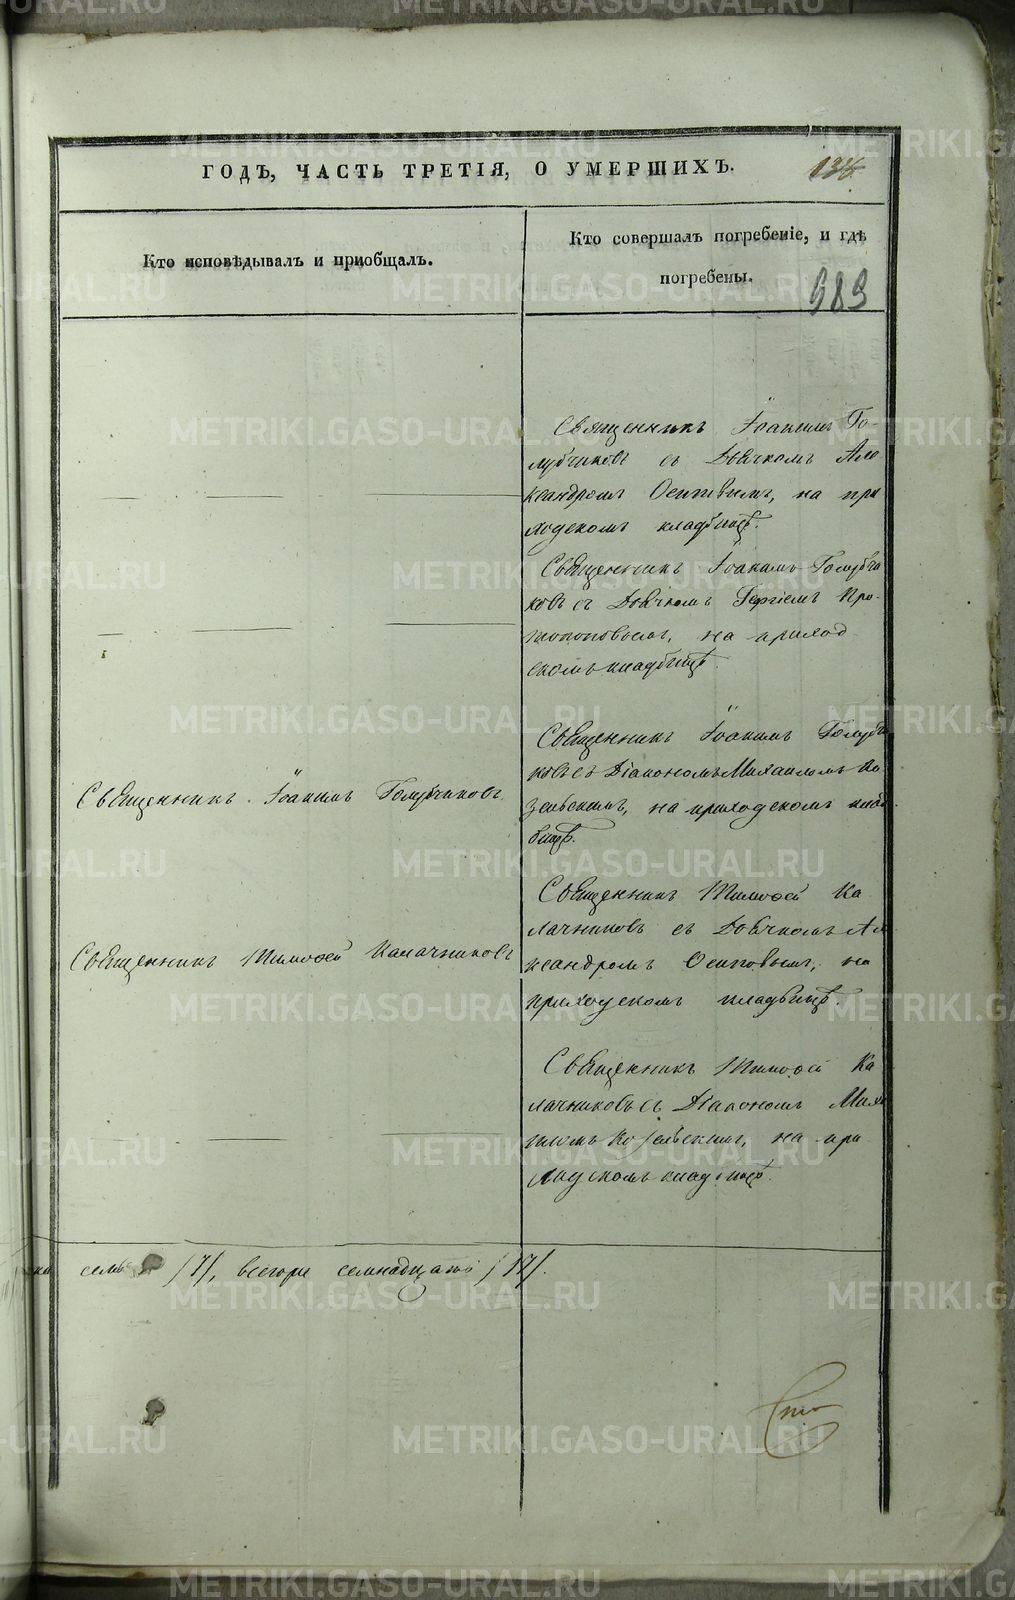 METRIKI.GASO-URAL.RU
ГОДЪ, ЧАСТЬ ТРЕТІЯ, О УМЕРШИХЪ.
Кто исповѣдывалъ и пріобщалъ.
Кто совершалъ погребеніе, и гдѣ
погребены.
983
Священникъ Іоакимъ Го-
лубчиковъ съ Дьячкомъ Але
ксандромъ Осиповымъ, на при
ходскомъ кладбищѣ.
Священникъ Іоакимъ Голубчи
ковъ съ Дьячкомъ Сергіемъ Про-
топоповымъ, на приход
скомъ кладбищѣ.
Священникъ Іоакимъ Голубчиковъ
Священникъ Іоакимъ Голубчи
ковъ съ Діакономъ Михаиломъ Ко
зельскимъ, на приходскомъ клад
бищѣ.
Священникъ Тимофей Калачниковъ
Священникъ Тимофей Ка
лачниковъ съ Дьячкомъ Але
ксандромъ Осиповымъ, на
приходскомъ кладбищѣ.
Священникъ Тимофей Ка
лачниковъ съ Діакономъ Миха
иломъ Козельскимъ, на при
ходскомъ кладбищѣ.
семь /7/, всего семнадцать /17/.